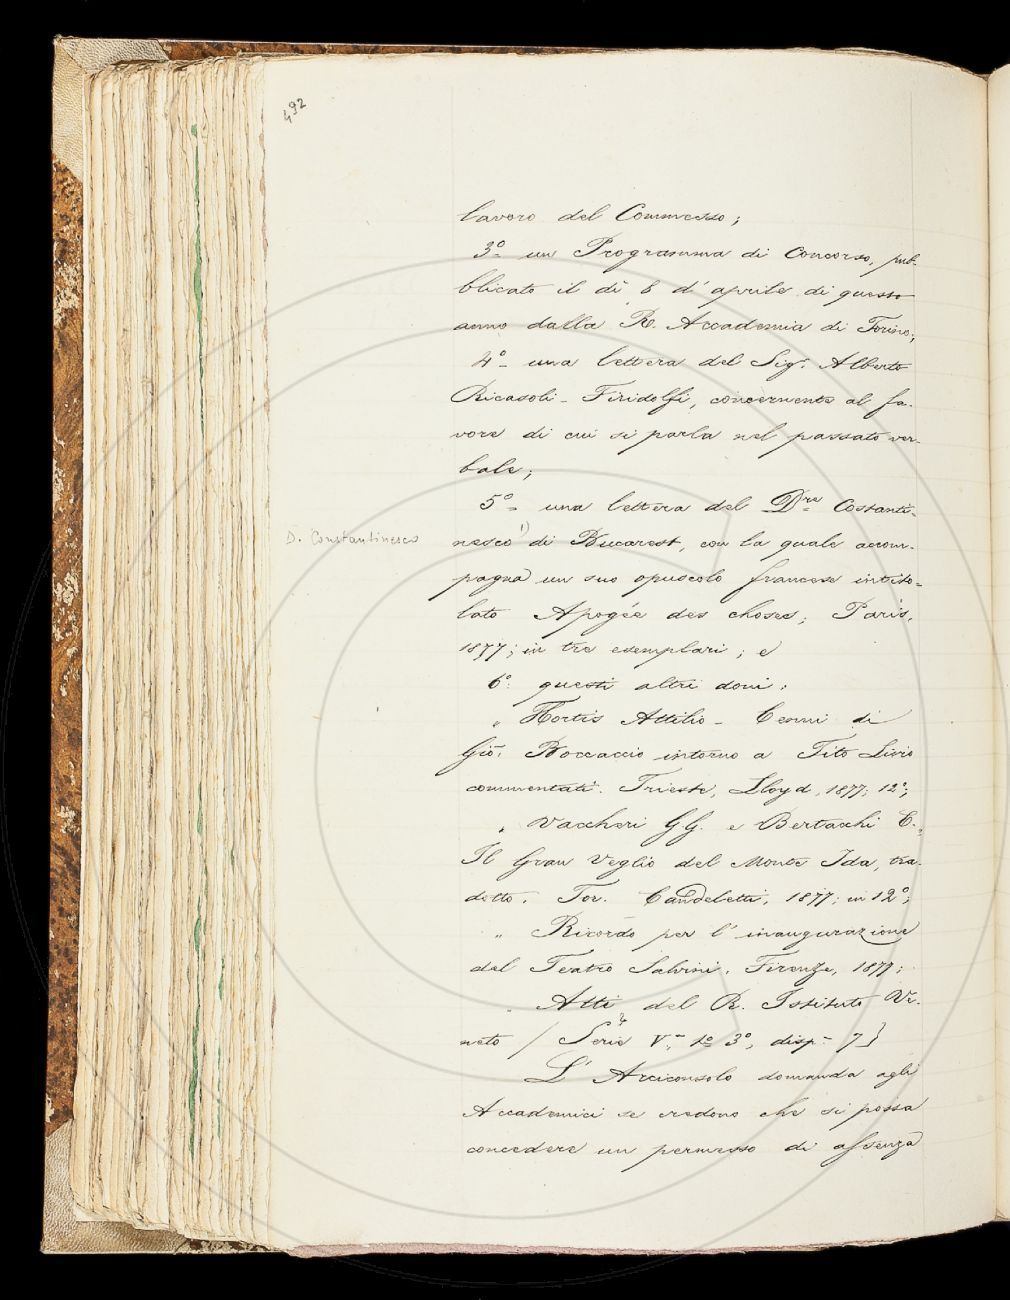 492
lavoro del Commesso;
3º un Programma di Concorso, pub-
blicato il dì 6 d'aprile di questo
anno dalla R. Accademia di Torino;
4º una lettera del Sig.r Alberto
Ricasoli-Firidolfi, concernente al fa-
vore di cui si parla nel passato ver-
bale;
5º una lettera del Dre Costanti-
D. Constantinesco
nesco 1) di Bucarest, con la quale accom-
pagna un suo opuscolo francese intito-
lato Apogée des choses; Paris,
1877; in tre esemplari; e
6º questi altri doni:
" Hortis Attilio - Cenni di
Gio. Boccaccio intorno a Tito Livio
commentati. Trieste, Lloyd, 1877; 12º;
" Vaccheri GG. e Bertacchi C.,
Il Gran Veglio del Monte Ida, tra-
dotto. Tor. Candeletti, 1877; in 12º;
" Ricordo per l'inaugurazione
del Teatro Salvini. Firenze, 1877;
" Atti del R. Istituto Ve-
neto / Serie V.a to 3º, disp. 7)
L'Arciconsolo domanda agli
Accademici se credono che si possa
concedere un permesso di assenza